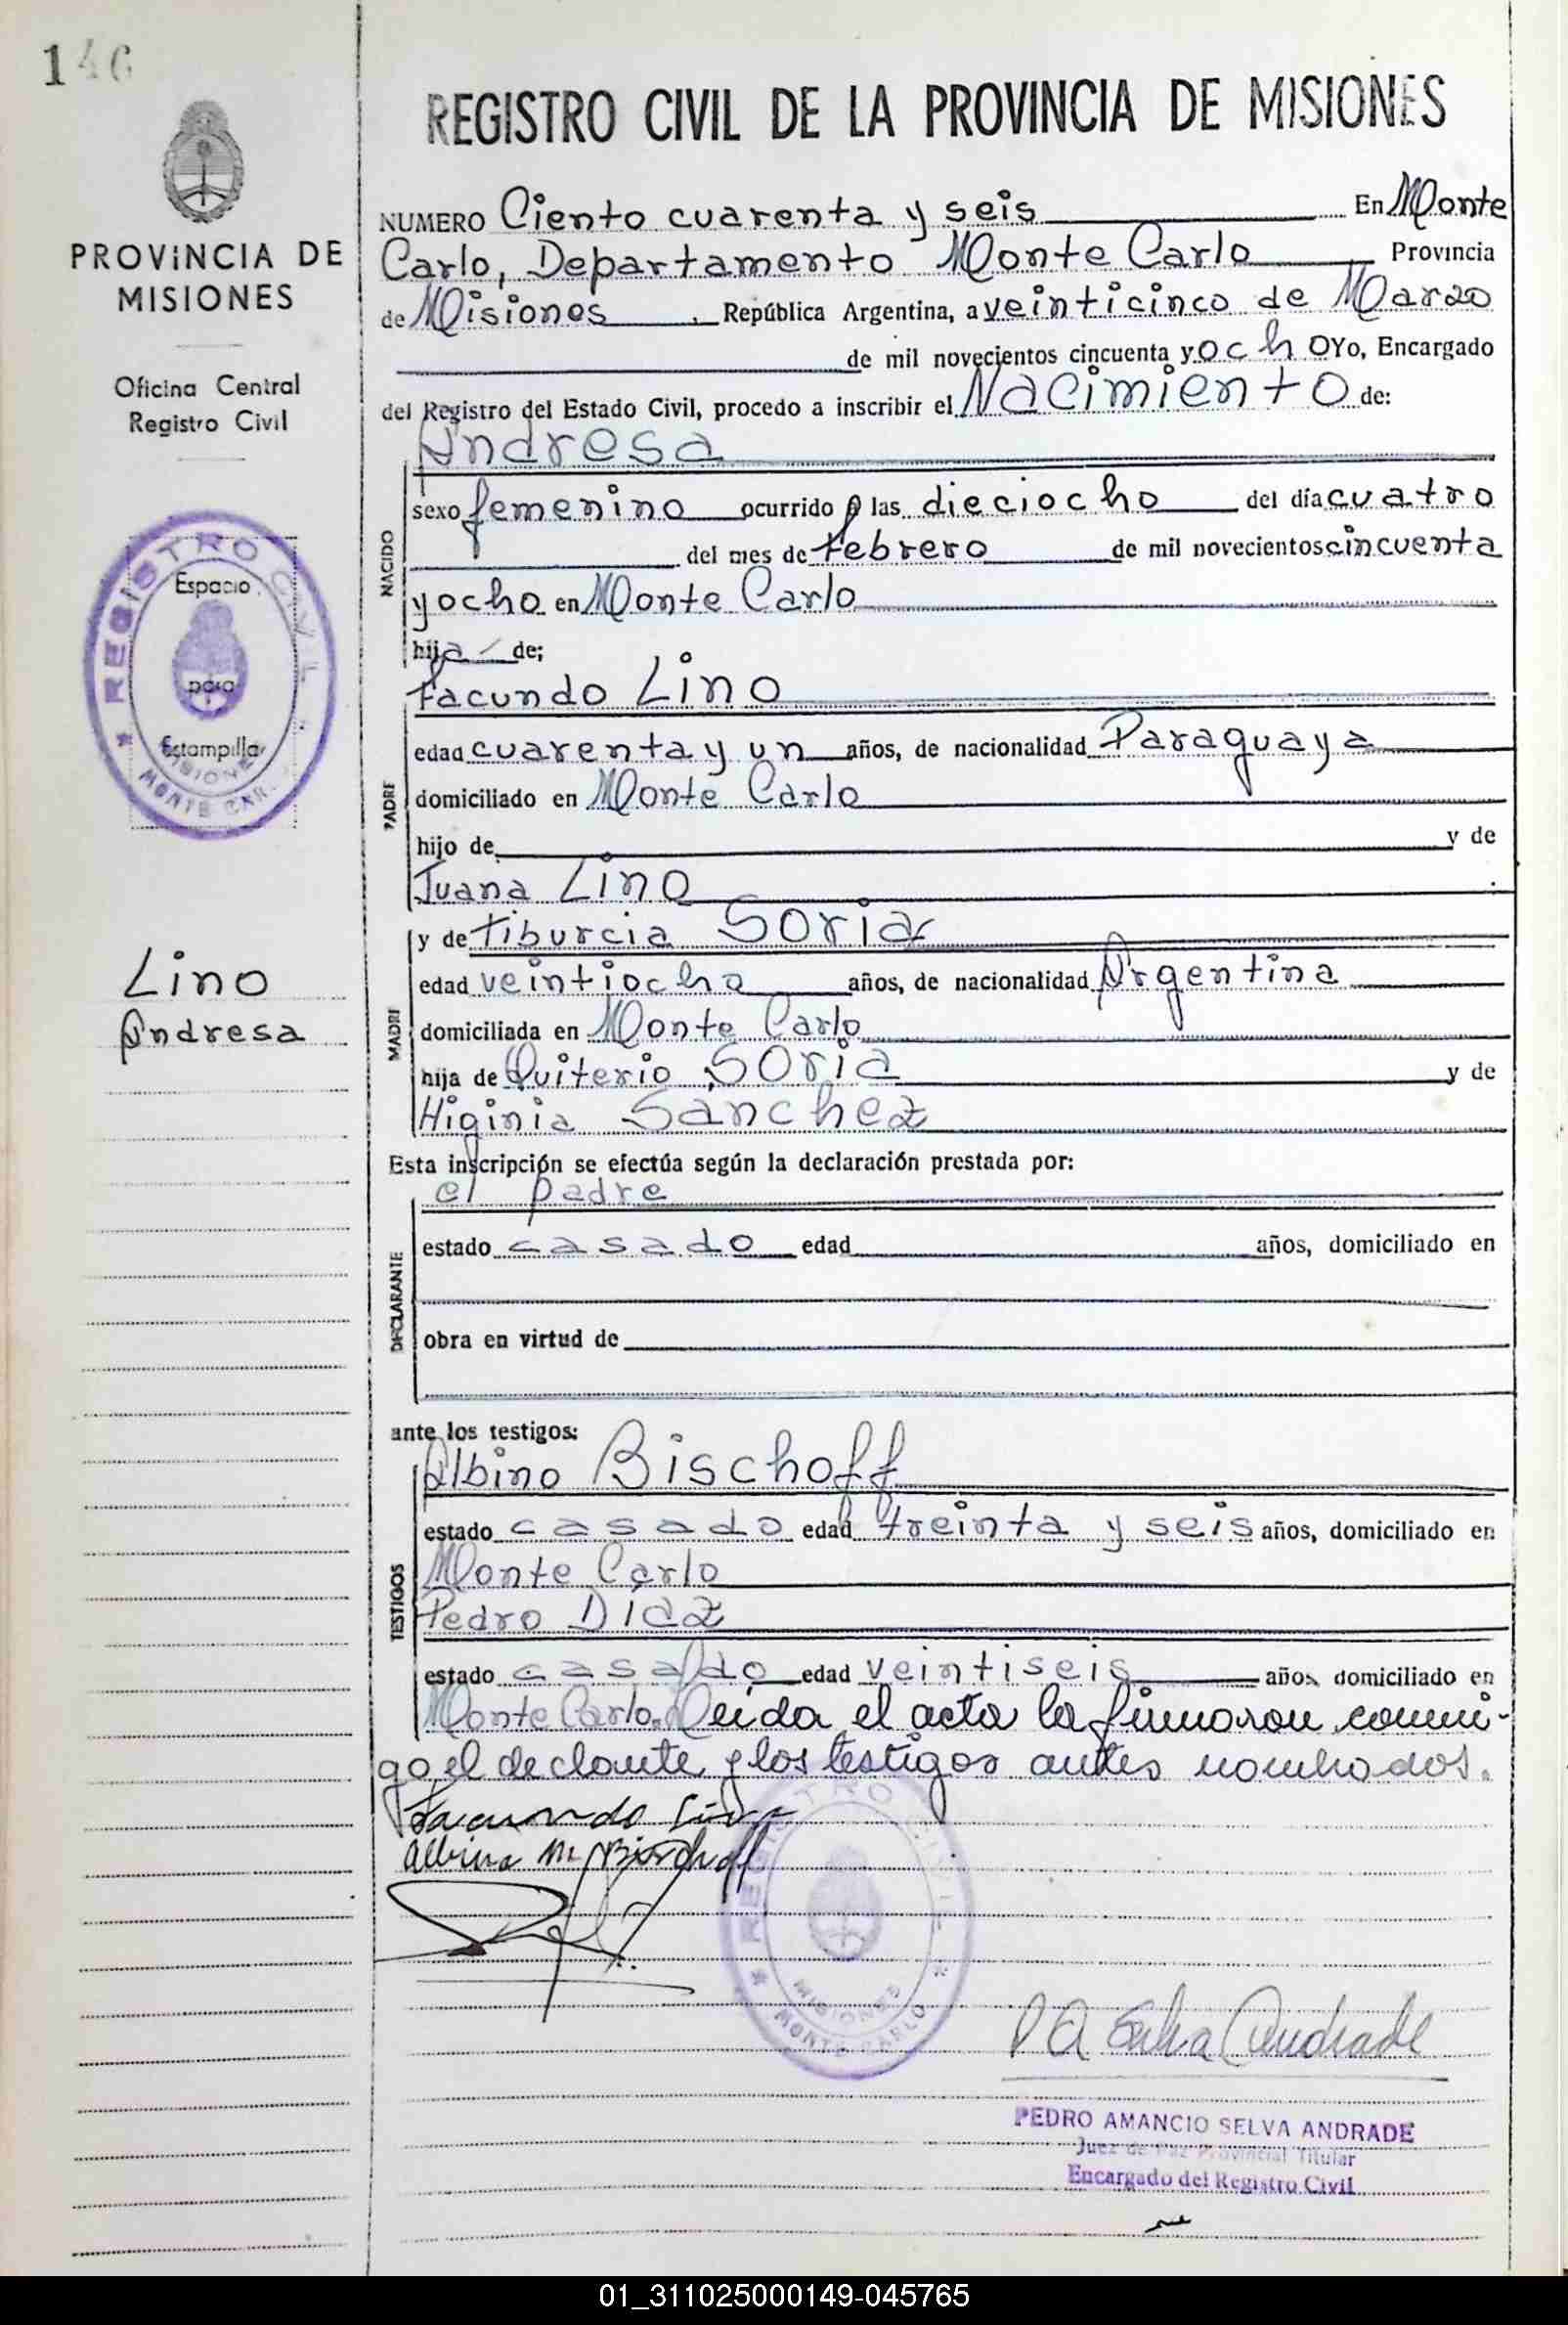 146
PROVINCIA DE
MISIONES
Oficina Central
Registro Civil
REGISTRO CIVIL
Espacio
para
Estampilla
MISIONES
MONTE CAR
Lino
Andresa
REGISTRO CIVIL DE LA PROVINCIA DE MISIONES
NUMERO Ciento cuarenta y seis En Monte
Carlo, Departamento Monte Carlo Provincia
de Misiones, República Argentina, a veinticinco de Marzo
de mil novecientos cincuenta y ocho Yo, Encargado
del Registro del Estado Civil, procedo a inscribir el Nacimiento de:
Andresa
NACIDO
sexo femenino ocurrido a las dieciocho del día cuatro
del mes de febrero de mil novecientos cincuenta
y ocho en Monte Carlo
hija de;
Facundo Lino
PADRE
edad cuarenta y un años, de nacionalidad Paraguaya
domiciliado en Monte Carlo
hijo de y de
Juana Lino
y de Tiburcia Soria
MADRE
edad veintiocho años, de nacionalidad Argentina
domiciliada en Monte Carlo
hija de Quiterio Soria y de
Higinia Sanchez
Esta inscripción se efectúa según la declaración prestada por:
el padre
DECLARANTE
estado casado edad años, domiciliado en
obra en virtud de
ante los testigos:
Albino Bischoff
TESTIGOS
estado casado edad treinta y seis años, domiciliado en
Monte Carlo
Pedro Díaz
estado casado edad veintiseis años, domiciliado en
Monte Carlo. Leida el acta la firmaron conmi-
go, el declante y los testigos antes nombrados.
Facundo Lino
Albino M. Bischoff
REGISTRO CIVIL
MISIONES
MONTE CARLO
P A Selva Andrade
PEDRO AMANCIO SELVA ANDRADE
Juez de Paz Provincial Titular
Encargado del Registro Civil
01_311025000149-045765